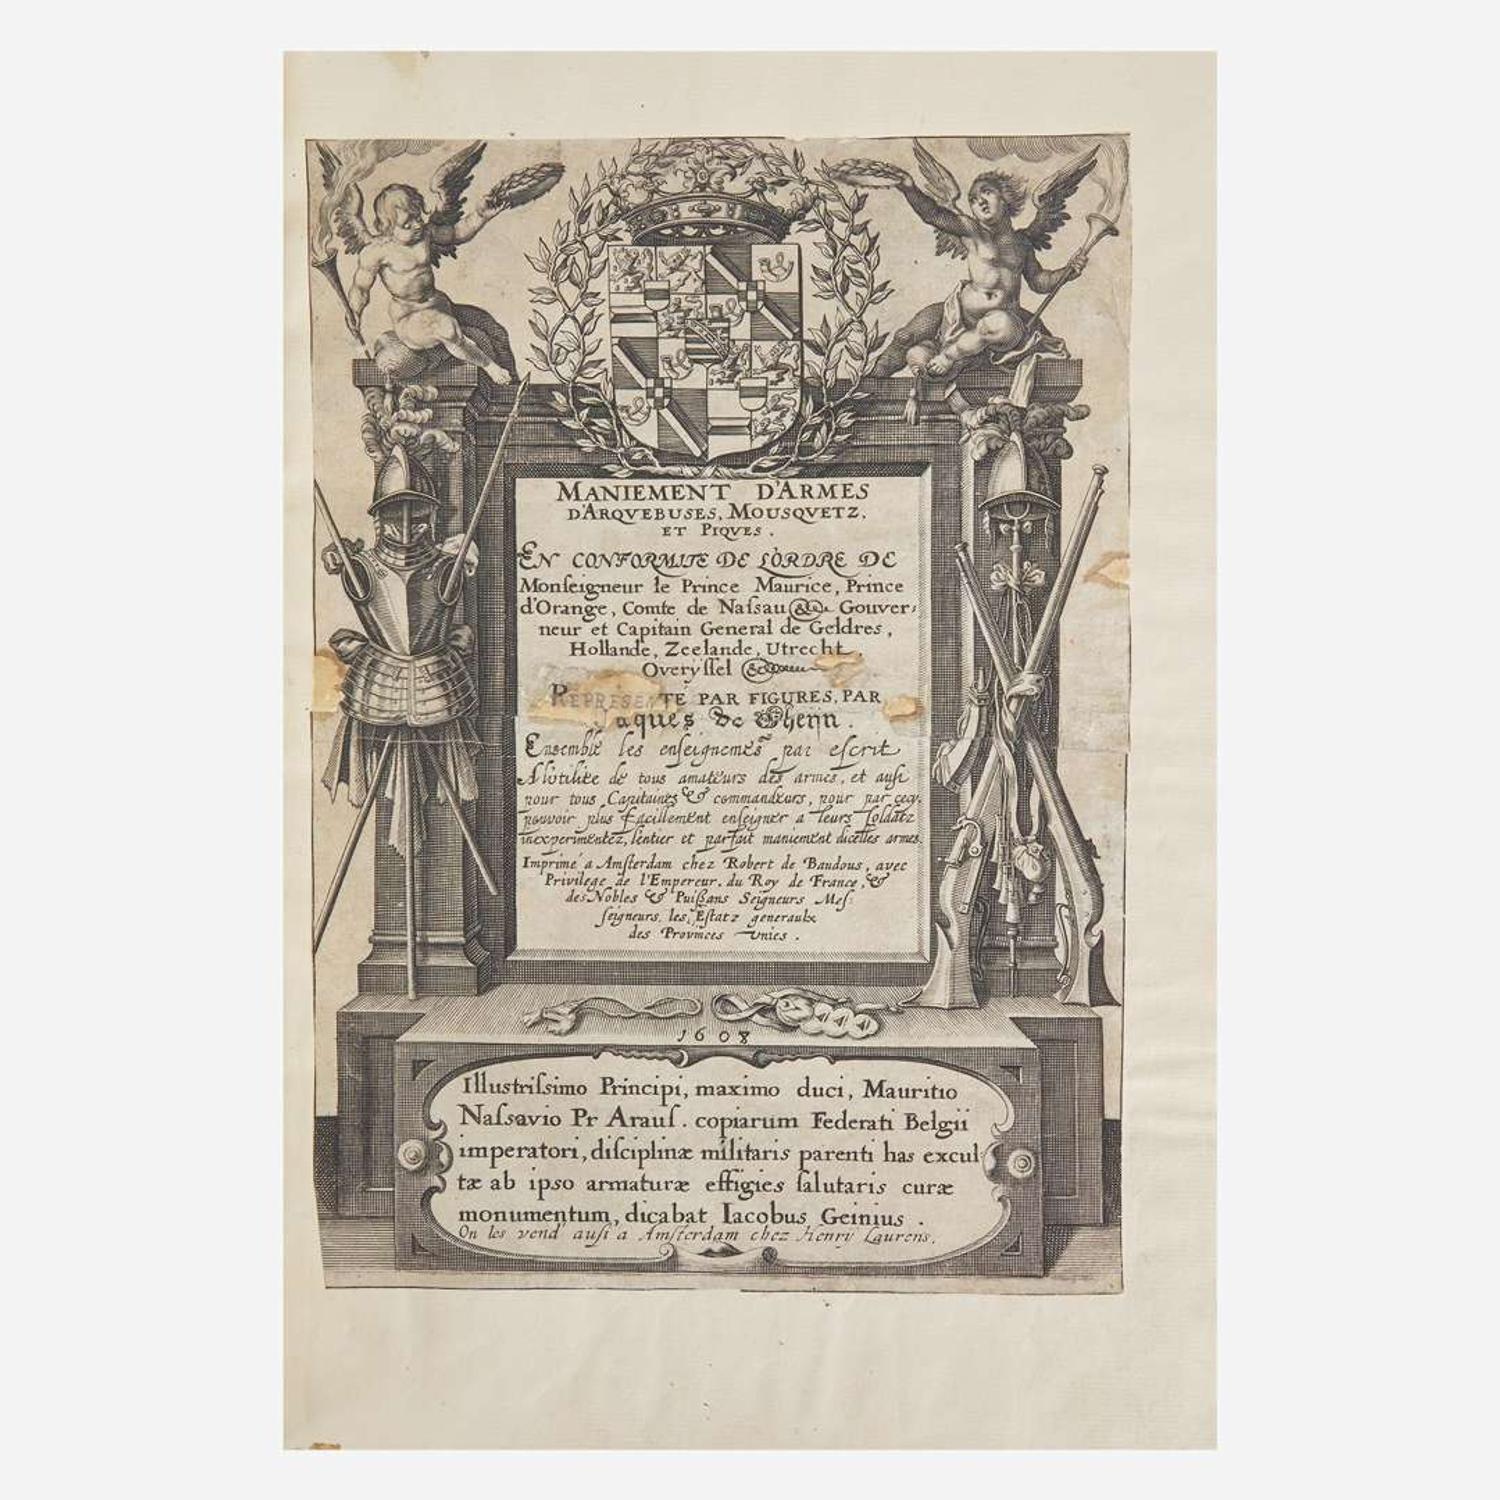 MANIEMENT D'ARMES
D'ARQVEBUSES, MOUSQVETZ,
ET PIQVES.
EN CONFORMITE DE L'ORDRE DE
Monſeigneur le Prince Maurice, Prince
d'Orange, Comte de Naſsau &c Gouver-
neur et Capitain General de Geldres,
Hollande, Zeelande, Utrecht,
Overyſſel &c
REPRESENTÉ PAR FIGURES, PAR
Jaques de Gheijn.
Ensemble les enſeignemēs par eſcrit
A lùtilite de tous amateurs des armes, et auſi
pour tous Capitaines & commandeurs, pour par cecy
pouvoir plus facillement enſeigner a leurs ſoldatz
inexperimentez, lentier et parfait maniement dicelles armes.
Imprimé a Amſterdam chez Robert de Baudous, avec
Privilege de l'Empereur, du Roy de France, &
des Nobles & Puiſsans Seigneurs Meſ:
ſeigneurs, les Eſtatz generaulx
des Provinces Vnies.
1608
Illustriſsimo Principi, maximo duci, Mauritio
Naſsavio Pr Arauſ. copiarum Federati Belgii
imperatori, diſciplinæ militaris parenti has excul
tæ ab ipso armaturæ effigies ſalutaris curæ
monumentum, dicabat Iacobus Geinius.
On les vend auſi a Amſterdam chez Henrij Laurens.